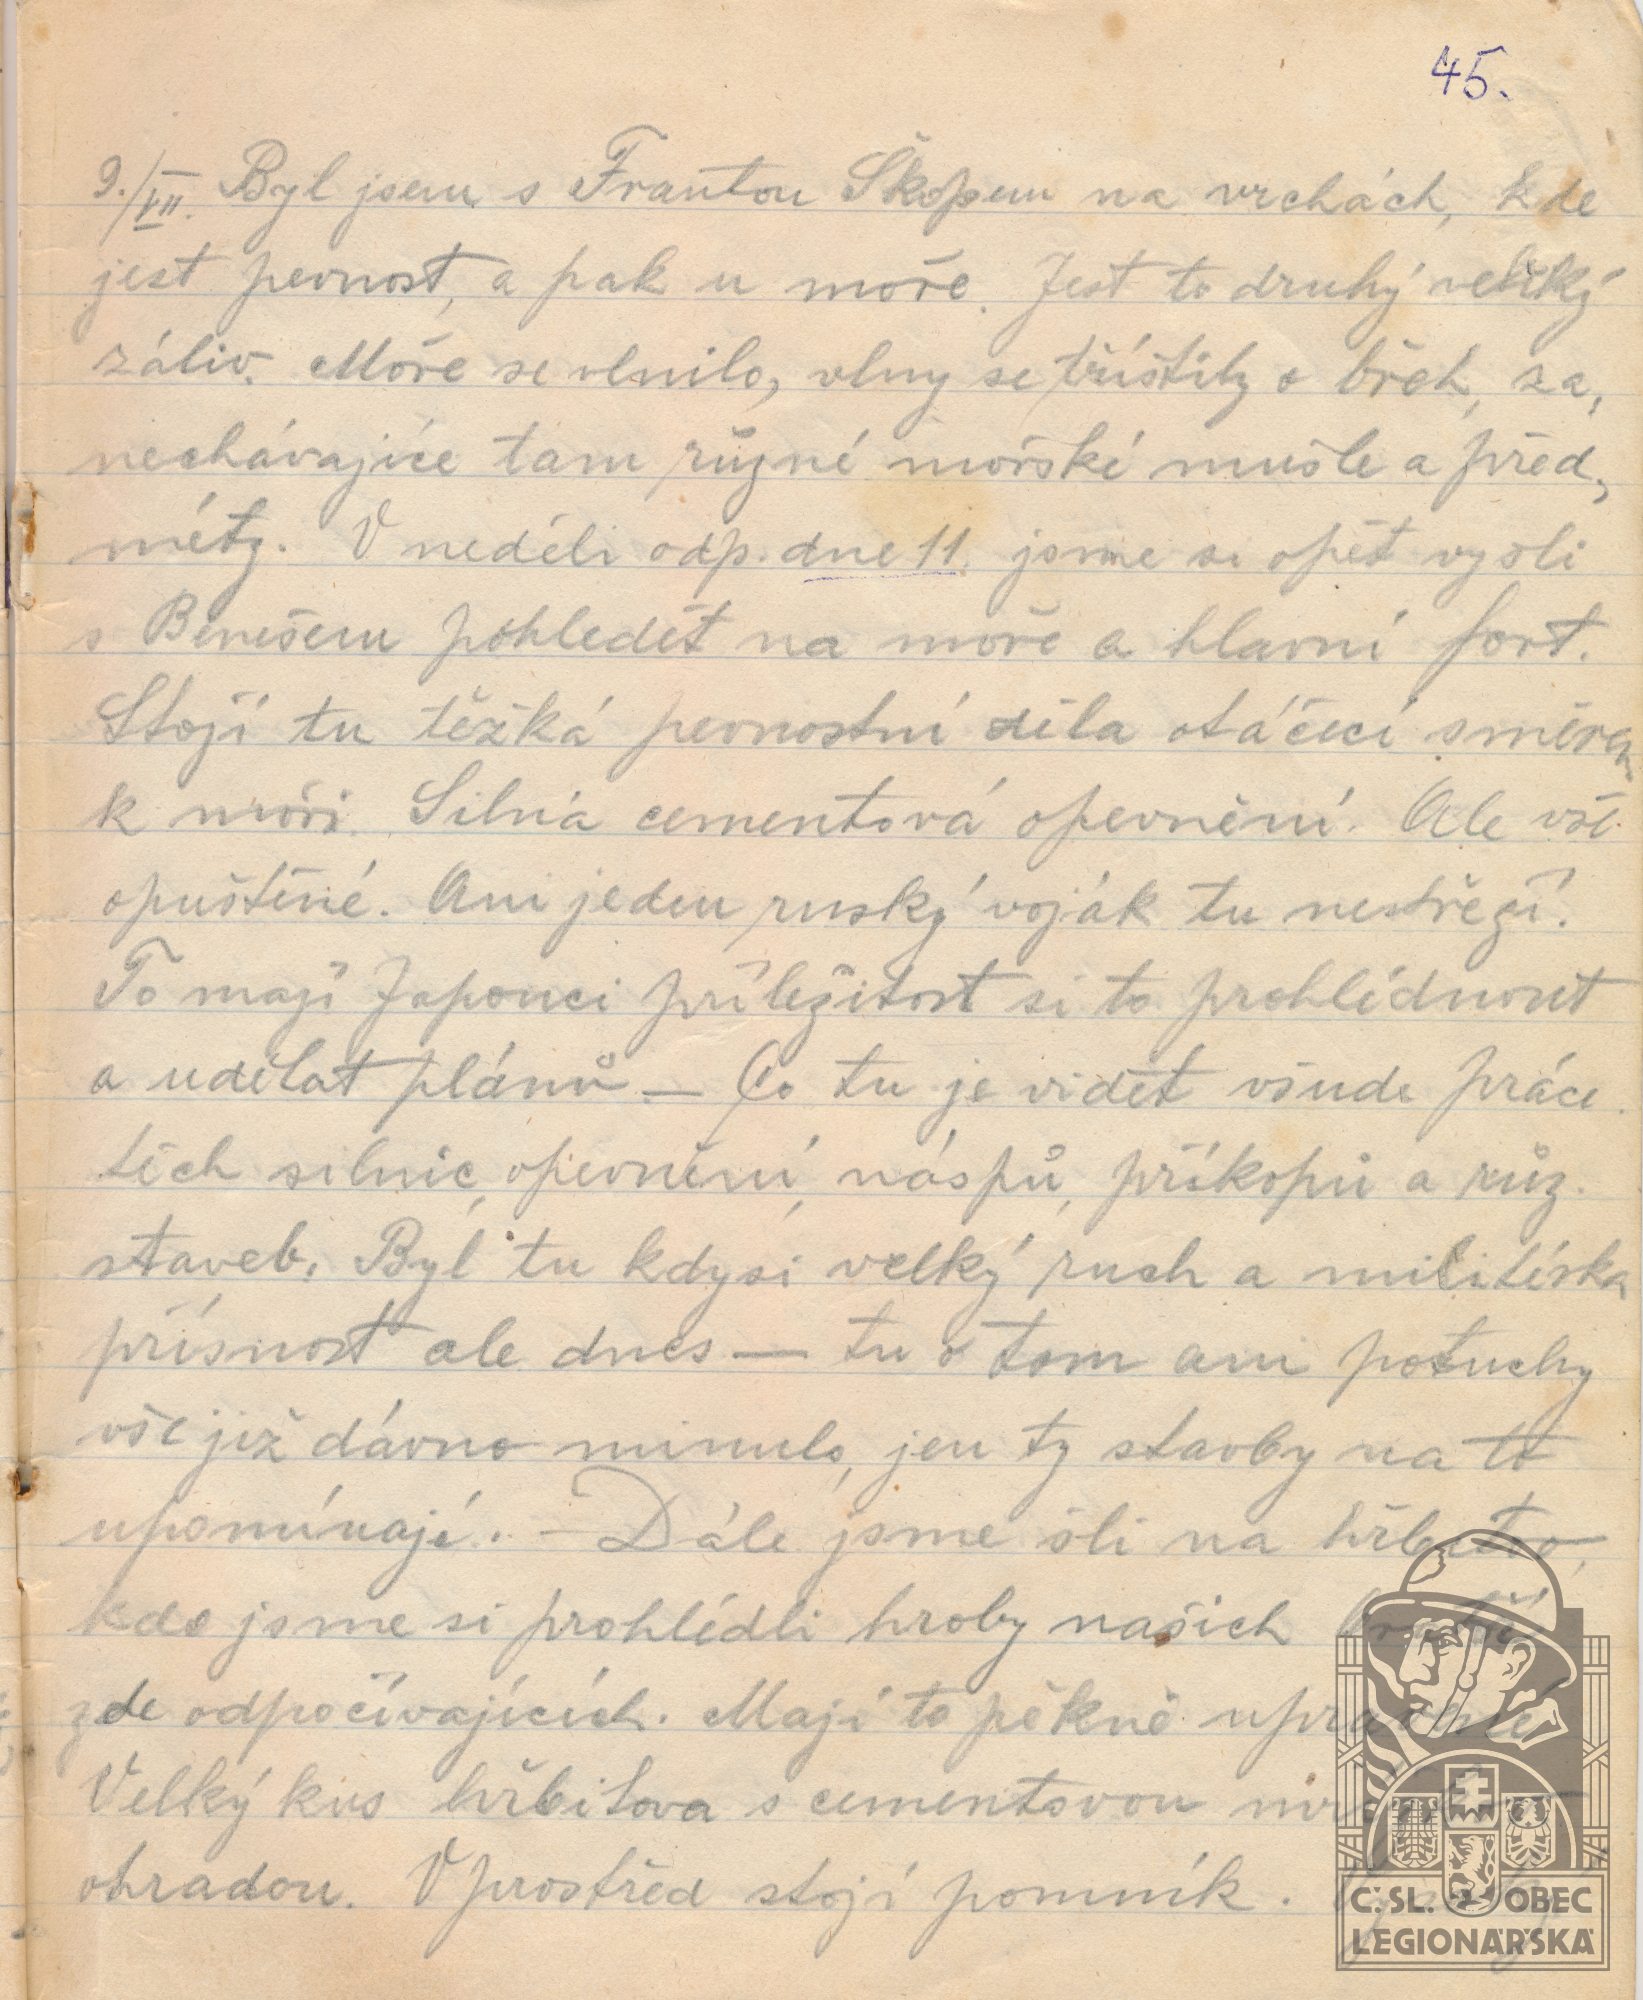 45.
9./VII. Byl jsem s Frantou Škopem na vrchách, kde
jest pevnost, a pak u moře. Jest to druhý veliký
záliv. Moře se vlnilo, vlny se tříštily o břeh, za„
nechávajíce tam různé mořské mušle a před„
měty. V neděli odp. dne 11. jsme si opět vyšli
s Benešem pohledět na moře a hlavní fort.
Stojí tu těžká pevnostní děla otáčecí směrem
k moři. Silná cementová opevnění. Ale vše
opuštěné. Ani jeden ruský voják tu nestřeží.
To mají Japonci příležitost si to prohlédnout
a udělat plánů — Co tu je vidět všude práce
těch silnic, opevnění, náspů, příkopů a růz.
staveb. Byl tu kdysi velký ruch a militérska
přísnost ale dnes — tu o tom ani potuchy
vše již dávno minulo, jen ty stavby na to
upomínají. — Dále jsme šli na hřbitov,
kde jsme si prohlédli hroby našich bratří
zde odpočívajících. Mají to pěkně upravené
Velký kus hřbitova s cementovou
ohradou. V prostřed stojí pomník.
Č.SL. OBEC
LEGIONÁŘSKÁ